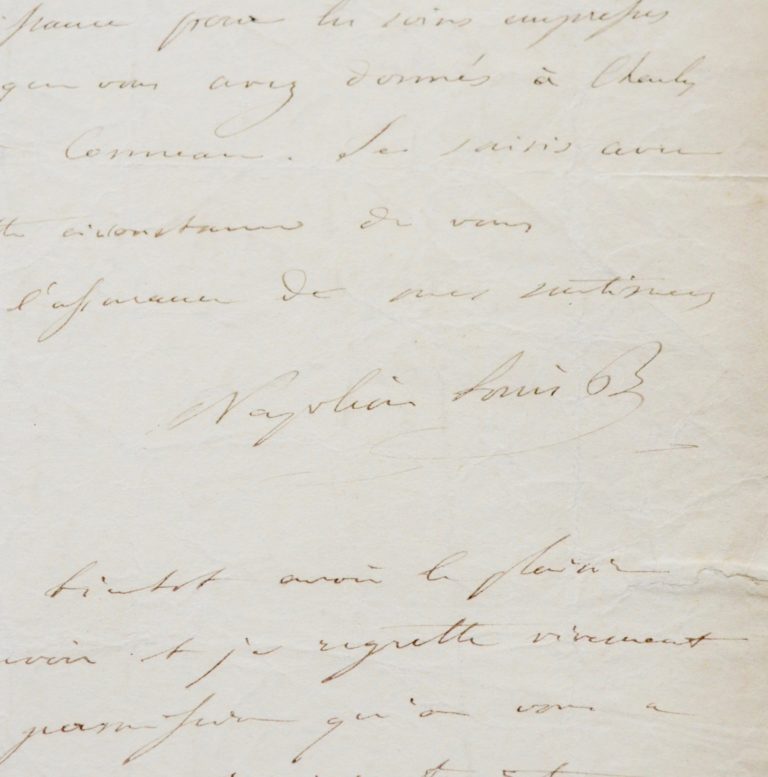 pour les soins empressés
que vous avez donnés à Charles
Conneau. Je saisis avec
circonstance de vous
l'assurance de mes sentimens
Napoléon Louis B
bientot avoir le plaisir
voir et je regrette vivement
permission qu'on vous a